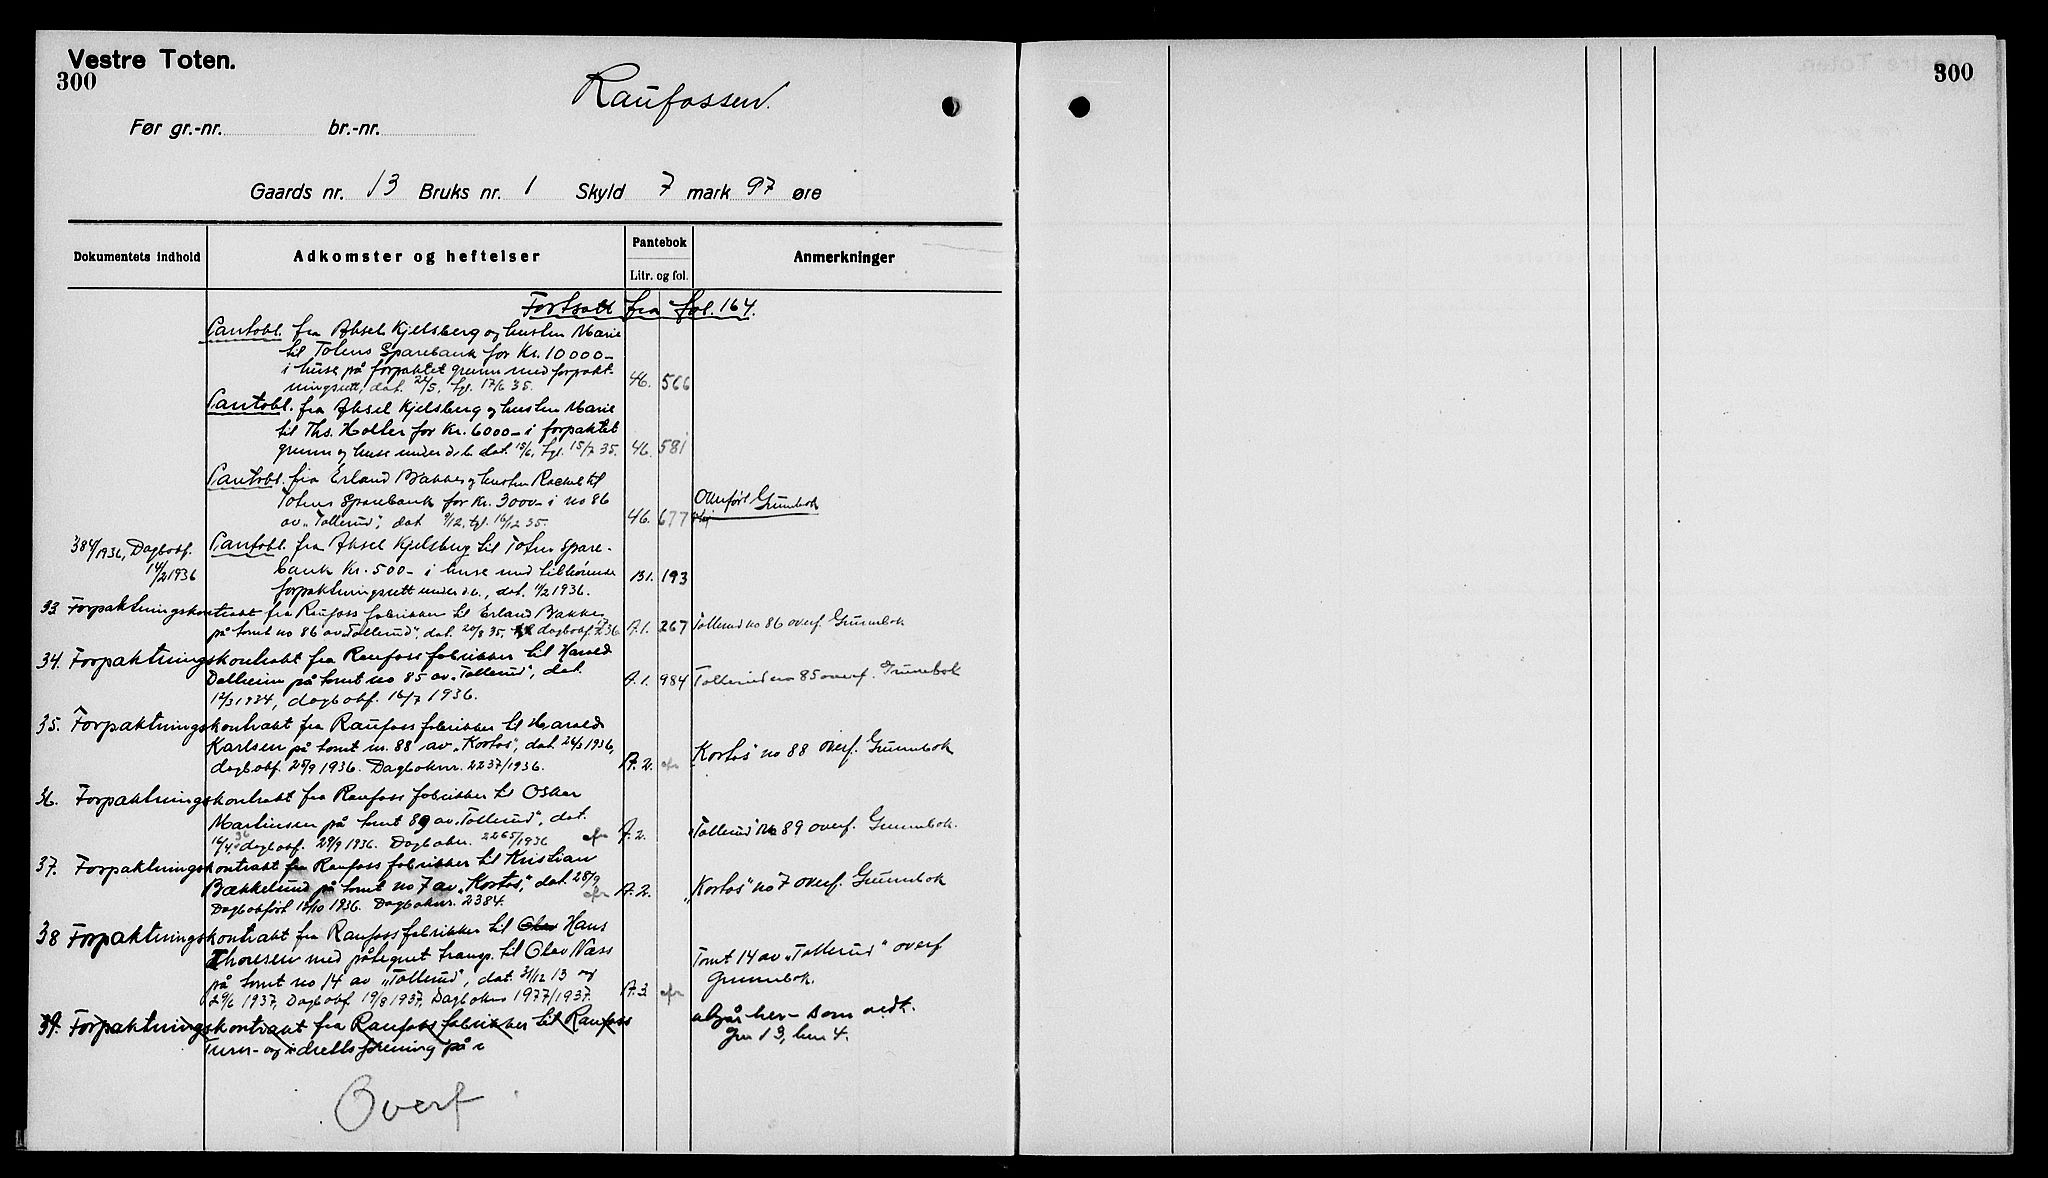 Vestre Toten.
300
Raufossen.
Før gr.-nr. br.-nr.
Gaards nr. 13 Bruks nr. 1 Skyld 7 mark 97 øre
Dokumentets indhold
Adkomster og heftelser
Pantebok
Litr. og fol.
Anmerkninger
Fortsatt fra fol. 164.
Pantobl. fra Aksel Kjelsberg og hustru Marie
til Totens Sparebank for Kr. 10000-
i huse på forpaktet grunn med forpakt-
ningsrett, dat. 24/5, tgl. 17/6 35. 46. 566
Pantobl. fra Aksel Kjelsberg og hustru Marie
til Ths. Holter for Kr. 6000- i forpaktet
grunn og huse under d.b. dat. 15/6, tgl. 15/7 35. 46. 581
Pantobl. fra Erland Bakke og hustru Rachel til
Totens Sparebank for Kr. 3000- i no 86
av "Tollerud", dat 9/12, tgl. 16/12 35. 46. 677
Overført Grunnbok
384/1936, Dagbokf.
14/2 1936
Pantobl. fra Aksel Kjelsberg til Totens Spare-
bank Kr. 500- i huse med tilhørende
forpaktningsrett under d.b., dat. 11/2 1936. B1. 193
33 Forpaktningskontrakt fra Raufoss fabrikker til Erland Bakke
på tomt no 86 av "Tollerud", dat. 20/8 35, dagbokf. 36. A.1. 267 Tollerud no 86 overf. Grunnbok
34. Forpaktningskontrakt fra Raufoss fabrikker til Harald
Dalheim på tomt no 85 av "Tollerud", dat.
12/3 1934, dagbokf. 16/7 1936. A.1. 984 Tollerud no 85 overf. Grunnbok
35. Forpaktningskontrakt fra Raufoss fabrikker til Harald
Karlsen på tomt nr. 88 av "Kortos", dat. 24/3 1936,
dagbokf. 25/9 1936. Dagboknr. 2237/1936. A.2. Kortos" no 88 overf. Grunnbok
36. Forpaktningskontrakt fra Raufoss fabrikker til Oskar
Martinsen på tomt 89 av "Tollerud", dat.
16/4 36 dagbokf. 29/9 1936. Dagboknr. 2265/1936 A.2. "Tollerud" no 89 overf. Grunnbok.
37. Forpaktningskontrakt fra Raufoss fabrikker til Kristian
Bækkelund på tomt no 7 av "Kortos", dat. 28/9
Dagbokført 15/10 1936. Dagboknr. 2384. A.2. "Kortos" no 7 overf. Grunnbok
38 Forpaktningskontrakt fra Raufoss fabrikker til Olav Hans
Thoresen med påtegnet transp. til Olav Næss
på tomt no 14 av "Tollerud", dat. 31/12 13 og
29/6 1937, Dagbokf. 19/8 1937, Dagboknr 1977/1937. A.3.
Tomt 14 av "Tollerud" overf
Grunnbok.
39. Forpaktningskontrakt fra Raufoss fabrikker til Raufoss
Turn- og idrettsforening på
utgår her - som vedk.
gnr 13, bnr 4.
Overf
300